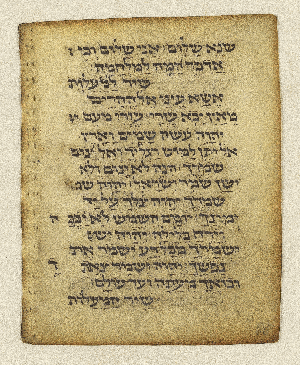 שנא שלום אני שלום וכי
אדבר המה למלחמה
שיר למעלות
אשא עיני אל ההרים
מאין יבא עזרי עזרי מעם
יהוה עשה שמים וארץ
אל יתן למוט רגלך ואל ינום
שמרך הנה לא ינום ולא
יישן שומר ישראל יהוה
שמרך יהוה צלך על יד
ימינך יומם השמש לא
וירח בלילה יהוה
ישמרך מכל רע ישמר את
נפשך יהוה ישמר צאתך
ובואך מעתה ועד עולם
שיר המעלות